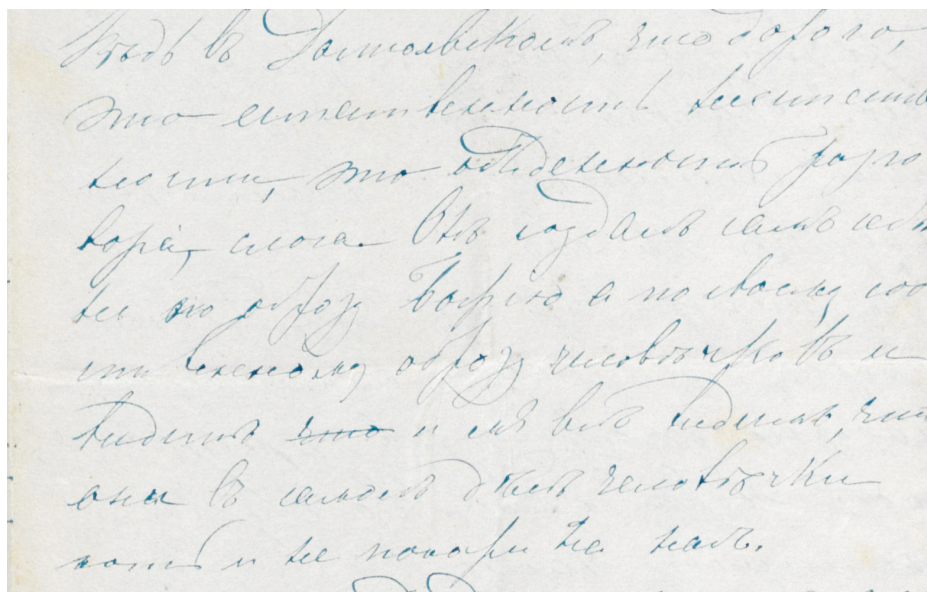 Вѣдь въ Достоевскомъ, что дорого,
это естественность
ности, это разго
вора, слога. Онъ создалъ самъ
не по образу Божію а по своему соб
ственному образу человѣчковъ и
видитъ ~~что~~ и мы всѣ видимъ, что
они въ самомъ дѣлѣ человѣчки
хоть и не похожи на насъ.